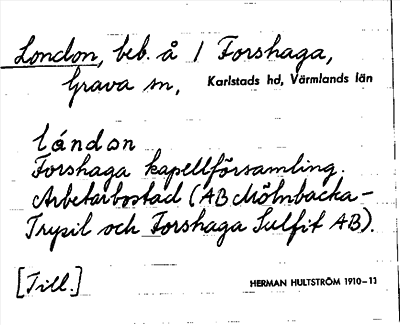 London, beb. å 1 Forshaga,
Grava sn, Karlstads hd, Värmlands län
lóndon
Forshaga kapellförsamling.
Arbetarbostad (AB Mölnbacka-
Trysil och Forshaga Sulfit AB).
[Till.]
HERMAN HULTSTRÖM 1910-11